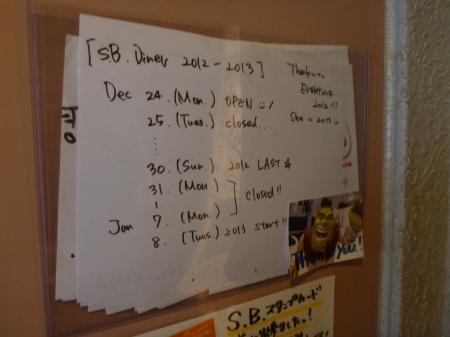 [S.B. Diner 2012-2013]
Dec 24. (Mon.) OPEN
25. (Tues.) closed...
30. (Sun.) 2012 LAST ☆
31. (Mon.)
closed!!
Jan 7. (Mon.)
8. (Tues.) 2013 start!!
2012!!!
See u 2013
Thank you!
S.B.スタンプカード